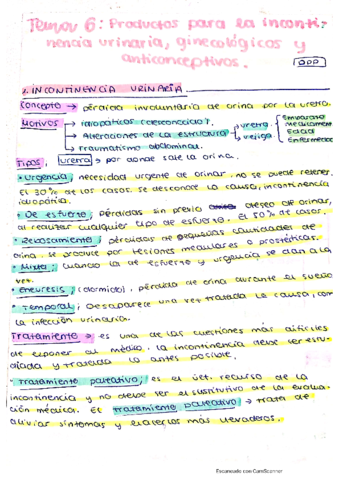 Tema 6: Productos para la inconti-
nencia urinaria, ginecológicos y
anticonceptivos.
1. INCONTINENCIA URINARIA
Concepto → pérdida involuntaria de orina por la uretra.
Motivos → idiopáticos (desconocido).
→ Alteraciones de la estructura → uretra → vejiga
→ Embarazo
Medicament
Edad
Enfermedad
→ Traumatismo abdominal.
Tipos. uretra → por donde sale la orina.
• Urgencia; necesidad urgente de orinar, no se puede retener.
El 30% de los casos se desconoce la causa, incontinencia
idiopática.
• De esfuerzo; pérdidas sin previo deseo de orinar,
al realizar cualquier tipo de esfuerzo. El 50% de casos.
• Rebosamiento; pérdidas de pequeñas cantidades de
orina. Se produce por lesiones medulares o prostáticas.
• Mixta; cuando la de esfuerzo y urgencia se dan a la
vez.
• Eneuresis; (dormido). pérdida de orina durante el sueño
• Temporal; Desaparece una vez tratada la causa, como
la infección urinaria.
Tratamiento → es una de las cuestiones más difíciles
de exponer al médico. la incontinencia debe ser estu-
diada y tratada lo antes posible.
• Tratamiento paleativo; es el últ. recurso de la
incontinencia y no debe ser el sustitutivo de la evalua-
ción médica. El tratamiento paleativo → trata de
aliviar síntomas y hacerlos más llevaderos.
Escaneado con CamScanner